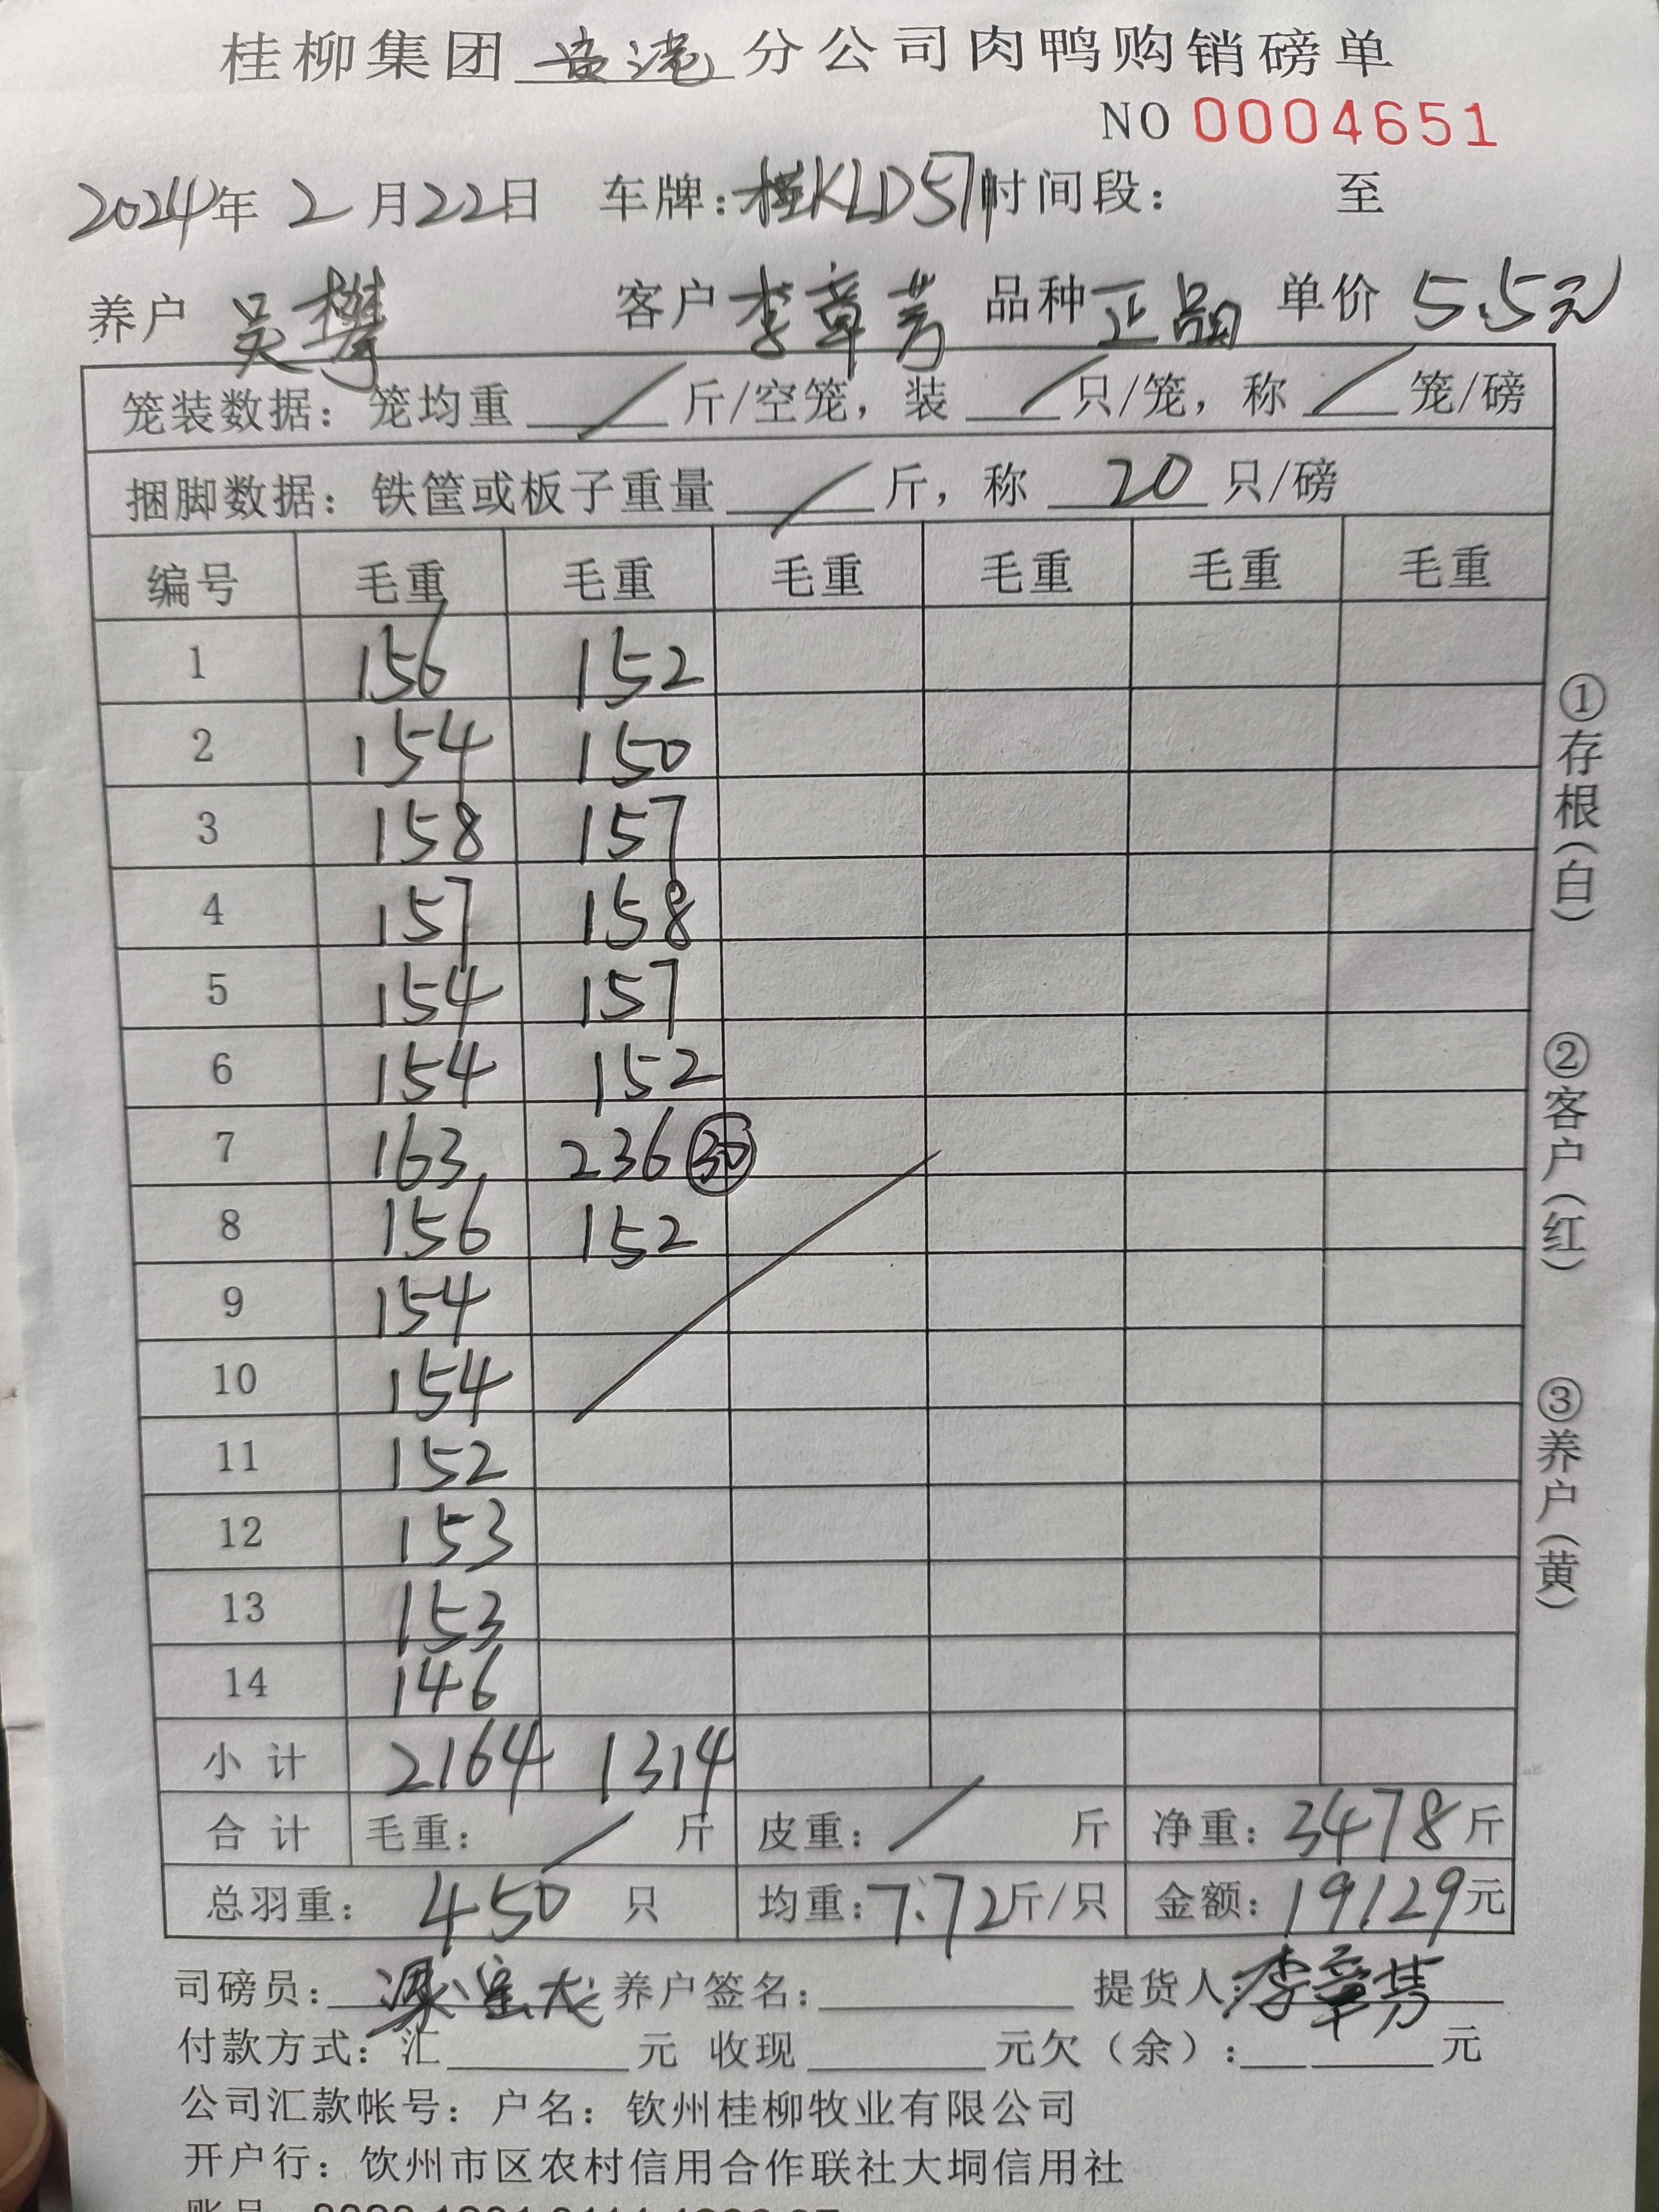 桂柳集团 贵港 分公司肉鸭购销磅单
NO 0004651
2024年 2 月22日 车牌:桂KLD571 时间段: 至
养户 吴攀 客户 李章芳 品种 正品 单价 5.5元
笼装数据: 笼均重 / 斤/空笼, 装 / 只/笼, 称 / 笼/磅
捆脚数据: 铁筐或板子重量 / 斤, 称 20 只/磅
编号 毛重 毛重 毛重 毛重 毛重 毛重
1 156 152
2 154 150
3 158 157
4 157 158
5 154 157
6 154 152
7 163 236 30
8 156 152
9 154
10 154
11 152
12 153
13 153
14 146
小计 2164 1314
合计 毛重: / 斤 皮重: / 斤 净重: 3478斤
总羽重: 450 只 均重:7.72斤/只 金额:19129元
司磅员: 养户签名: 提货人:李章芳
付款方式: 汇 元 收现 元欠(余): 元
公司汇款帐号: 户名: 钦州桂柳牧业有限公司
开户行: 钦州市区农村信用合作联社大垌信用社
①存根(白)
②客户(红)
③养户(黄)